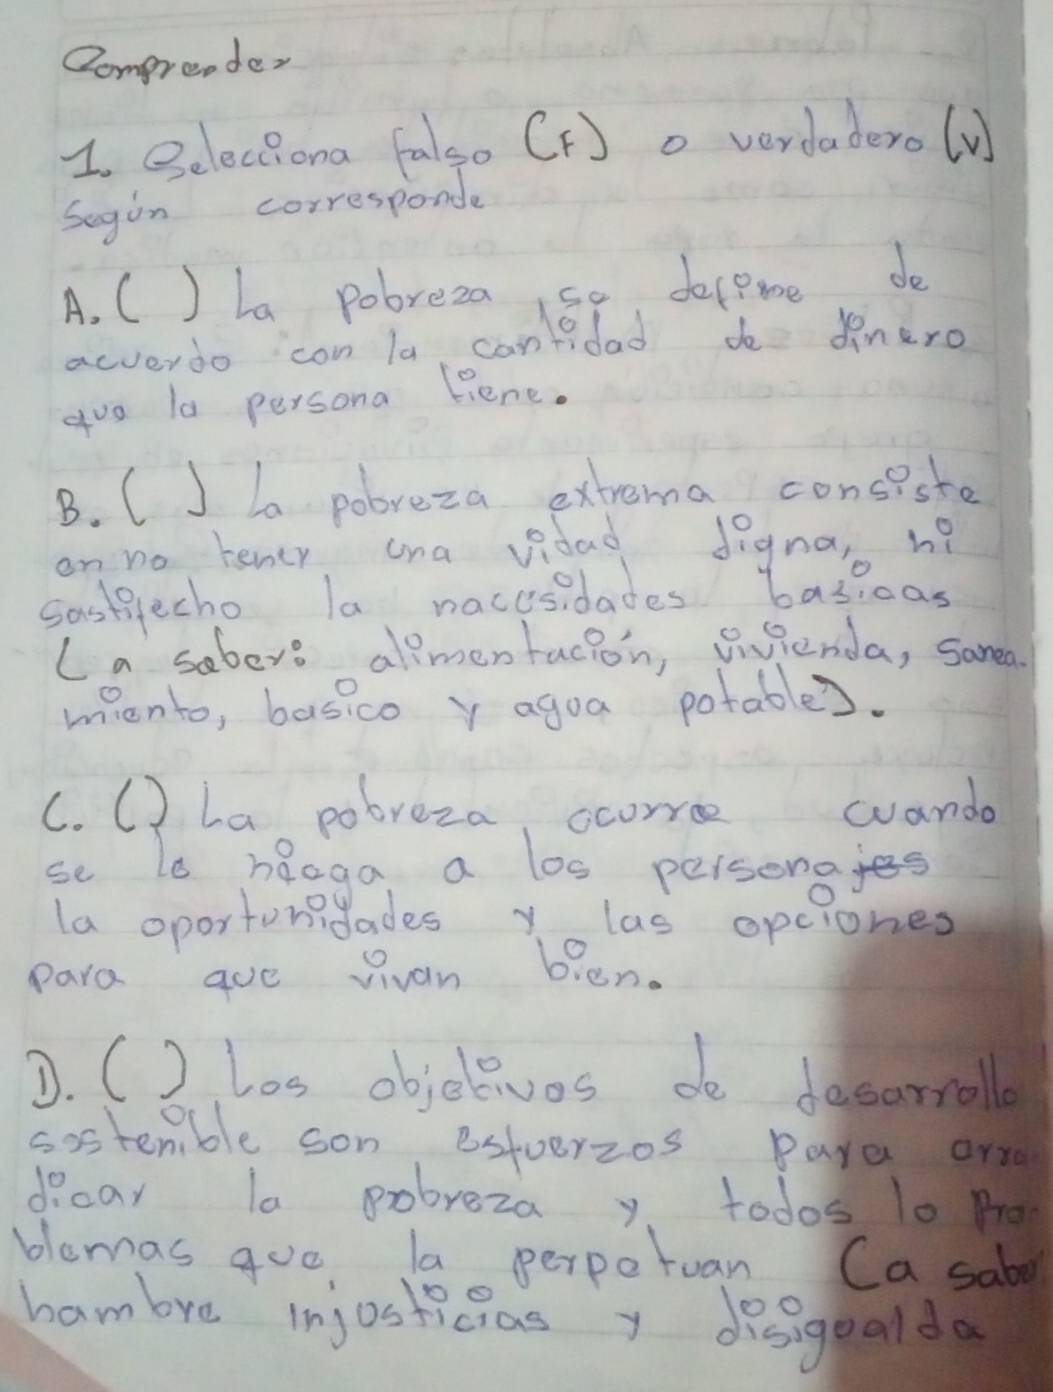 Comprender
1. Selecciona falso (F) o verdadero (V)
Según corresponde
A. ( ) La pobreza, se define de
acuerdo con la cantidad de dinero
que la persona tiene.
B. ( ) La pobreza extrema consiste
en no tener una vidad digna, ni
sastifecho la nacesidades basicas
( a saber: alimentación, vivienda, sanea-
miento, basico y agua potable).
C. ( ) La pobreza, ocurre cuando
se le niega a los personajes
la oportunidades y las opciones
para que vivan bien.
D. ( ) Los objetivos de desarrollo
sostenible son esfuerzos para arra-
dicar la pobreza y todos lo pro-
blemas que la perpetuan (a saber
hambre injusticias y disigualda